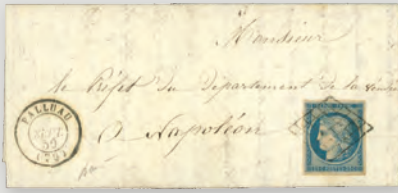 Monsieur
le Préfet du département de la
à Napoléon
PALLUAU
(79)